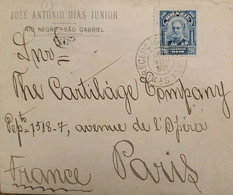 JOSÉ ANTONIO DIAS JUNIOR
RIO NEGRO-SÃO GABRIEL
Snrs
The Cartilage Company
Depᵗᵒ 1518-7, avenue de l'Opéra
Paris
France